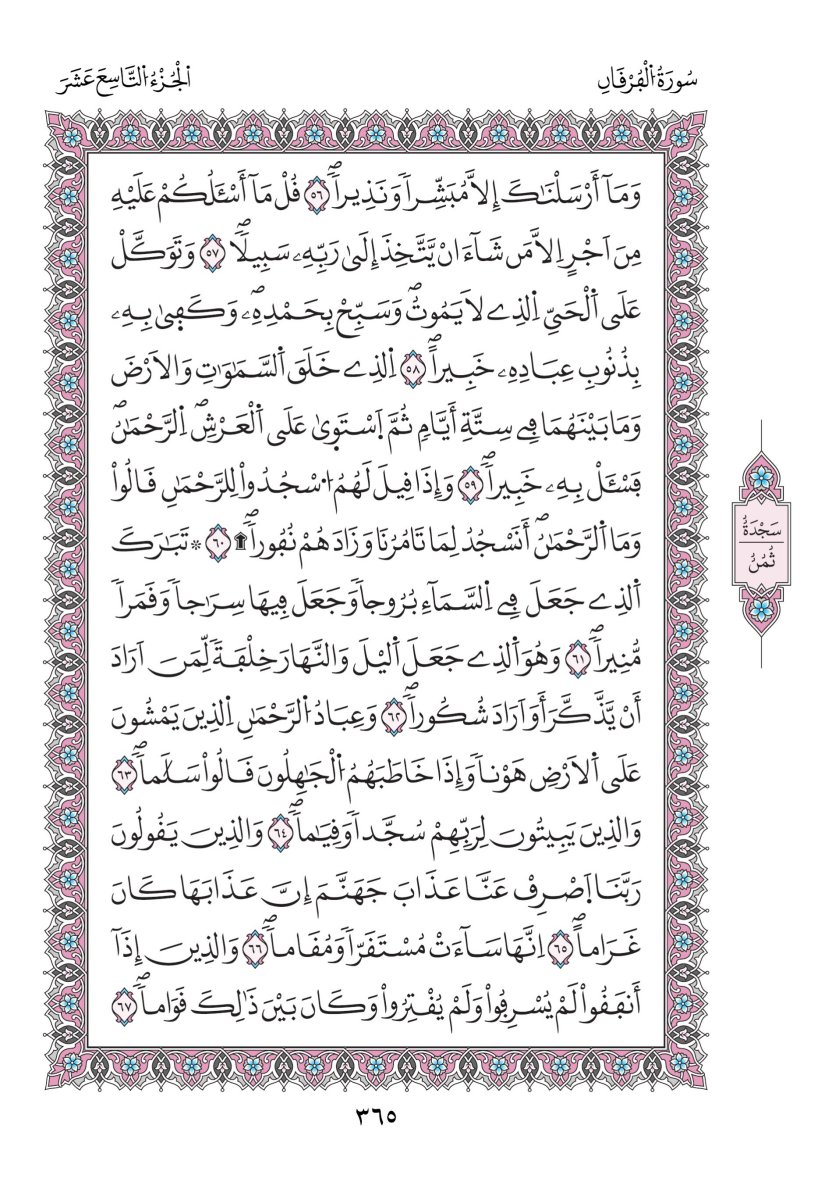 سُورَةُ اُ۬لْفُرْقَانِ
اَ۬لْجُزْءُ اُ۬لتَّاسِعَ عَشَرَ
وَمَآ أَرْسَلْنَٰكَ إِلَّا مُبَشِّراٗ وَنَذِيراٗۖ ٥٦ قُلْ مَآ أَسْـَٔلُكُمْ عَلَيْهِ
مِنَ اَجْرٍ اِلَّا مَن شَآءَ انْ يَّتَّخِذَ إِلَىٰ رَبِّهِۦ سَبِيلاٗۖ ٥٧ وَتَوَكَّلْ
عَلَى اَ۬لْحَيِّ اِ۬لذِے لَا يَمُوتُۖ وَسَبِّحْ بِحَمْدِهِۦۖ وَكَف۪ىٰ بِهِۦ
بِذُنُوبِ عِبَادِهِۦ خَبِيراًۖ ٥٨ اِ۬لذِے خَلَقَ اَ۬لسَّمَٰوَٰتِ وَالَارْضَ
وَمَا بَيْنَهُمَا فِے سِتَّةِ أَيَّامٖ ثُمَّ اَ۪سْتَو۪ىٰ عَلَى اَ۬لْعَرْشِۖ اِ۬لرَّحْمَٰنُۖ
فَسْـَٔلْ بِهِۦ خَبِيراٗۖ ٥٩ وَإِذَا قِيلَ لَهُمُ اُ۟سْجُدُواْ لِلرَّحْمَٰنِ قَالُواْ
وَمَا اَ۬لرَّحْمَٰنُۖ أَنَسْجُدُ لِمَا تَامُرُنَا وَزَادَهُمْ نُفُوراٗۖ ۩ ٦٠ ۞ تَبَٰرَكَ
اَ۬لذِے جَعَلَ فِے اِ۬لسَّمَآءِ بُرُوجاٗ وَجَعَلَ فِيهَا سِرَٰجاٗ وَقَمَراٗ
مُّنِيراٗۖ ٦١ وَهُوَ اَ۬لذِے جَعَلَ اَ۬ليْلَ وَالنَّهَارَ خِلْفَةٗ لِّمَنَ اَرَادَ
أَنْ يَّذَّكَّرَ أَوَ اَرَادَ شُكُوراٗۖ ٦٢ وَعِبَادُ اُ۬لرَّحْمَٰنِ اِ۬لذِينَ يَمْشُونَ
عَلَى اَ۬لَارْضِ هَوْناٗ وَإِذَا خَاطَبَهُمُ اُ۬لْجَٰهِلُونَ قَالُواْ سَلَٰماٗۖ ٦٣
وَالذِينَ يَبِيتُونَ لِرَبِّهِمْ سُجَّداٗ وَقِيَٰماٗۖ ٦٤ وَالذِينَ يَقُولُونَ
رَبَّنَا اَ۪صْرِفْ عَنَّا عَذَابَ جَهَنَّمَ إِنَّ عَذَابَهَا كَانَ
غَرَاماًۖ ٦٥ اِنَّهَا سَآءَتْ مُسْتَقَرّاٗ وَمُقَاماٗۖ ٦٦ وَالذِينَ إِذَآ
أَنفَقُواْ لَمْ يُسْرِفُواْ وَلَمْ يُقْتِرُواْ وَكَانَ بَيْنَ ذَٰلِكَ قَوَاماٗۖ ٦٧
سَجْدَةٌ
ثُمُنٌ
٣٦٥